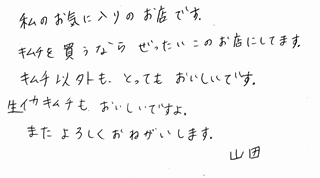 私のお気に入りのお店です.
キムチを買うなら ぜったいこのお店にしてます.
キムチ以外も、とっても おいしいです.
生イカキムチも おいしいですよ.
また よろしく おねがいします.
山田